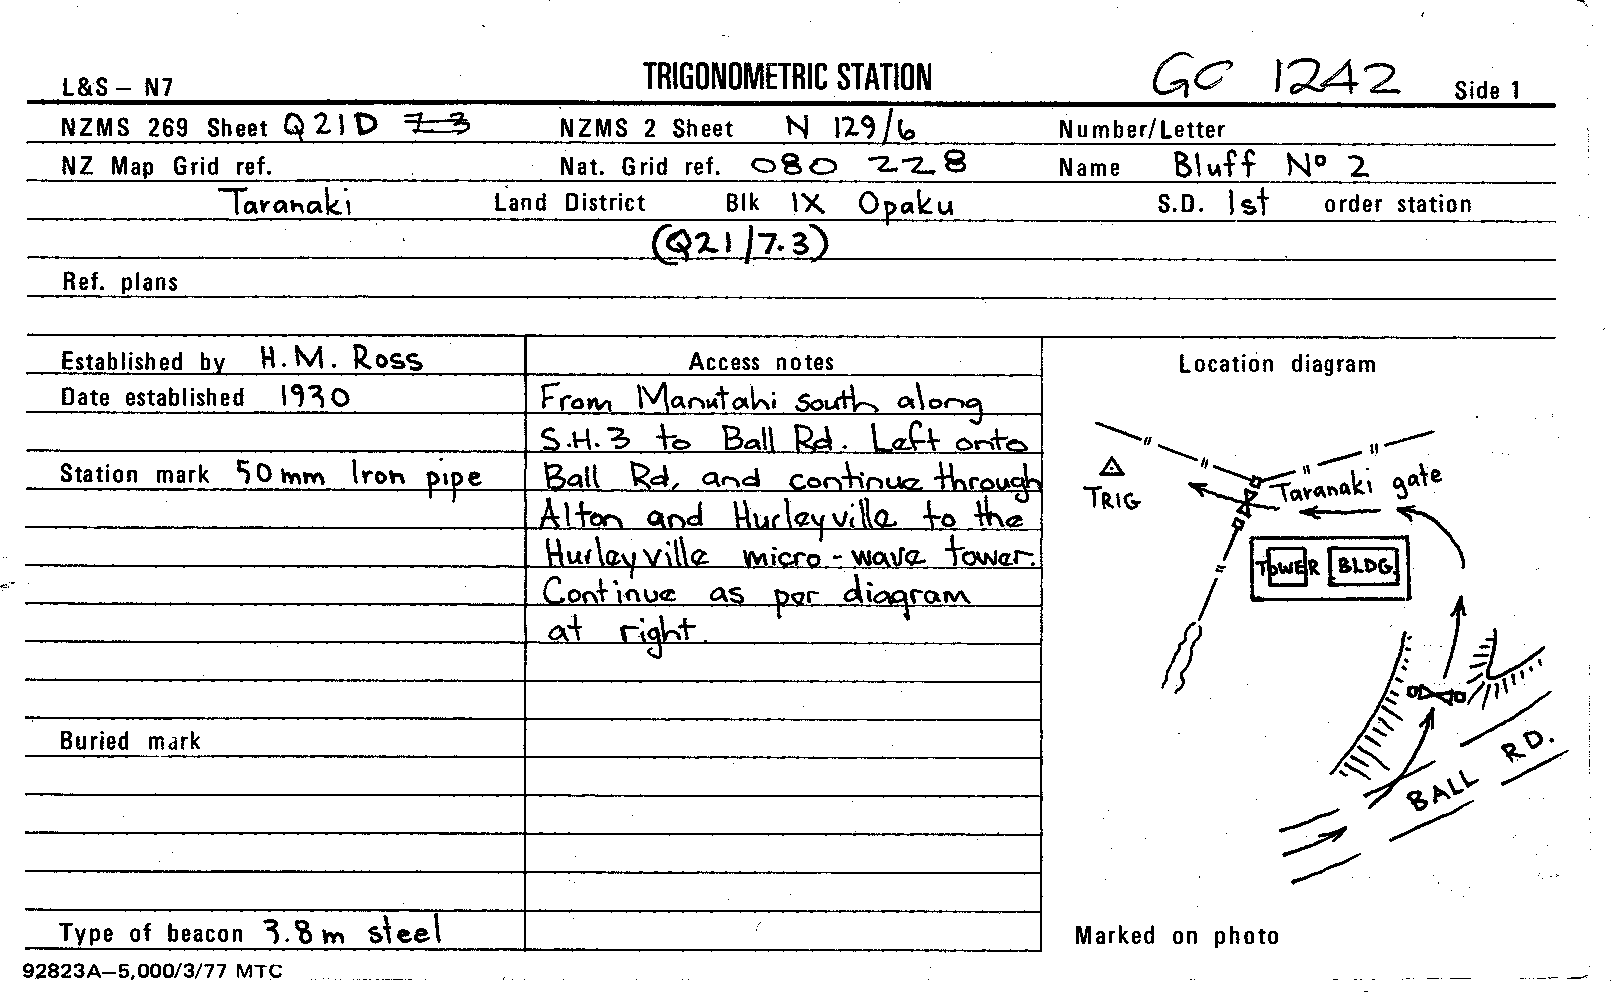 TRIGONOMETRIC STATION
GC 1242
L&S – N7
Side 1
NZMS 269 Sheet Q21D 73 NZMS 2 Sheet N 129/6 Number/Letter
NZ Map Grid ref. Nat. Grid ref. 080 228 Name Bluff Nº 2
Taranaki Land District Blk IX Opaku S.D. 1st order station
(Q21/7.3)
Ref. plans
Established by H.M. Ross
Date established 1930
Station mark 50mm Iron pipe
Buried mark
Type of beacon 3.8m steel
Access notes
From Manutahi south along
S.H.3 to Ball Rd. Left onto
Ball Rd, and continue through
Alton and Hurleyville to the
Hurleyville micro-wave tower.
Continue as per diagram
at right.
Location diagram
TRIG
Taranaki gate
TOWER BLDG.
BALL RD.
Marked on photo
92823A–5,000/3/77 MTC